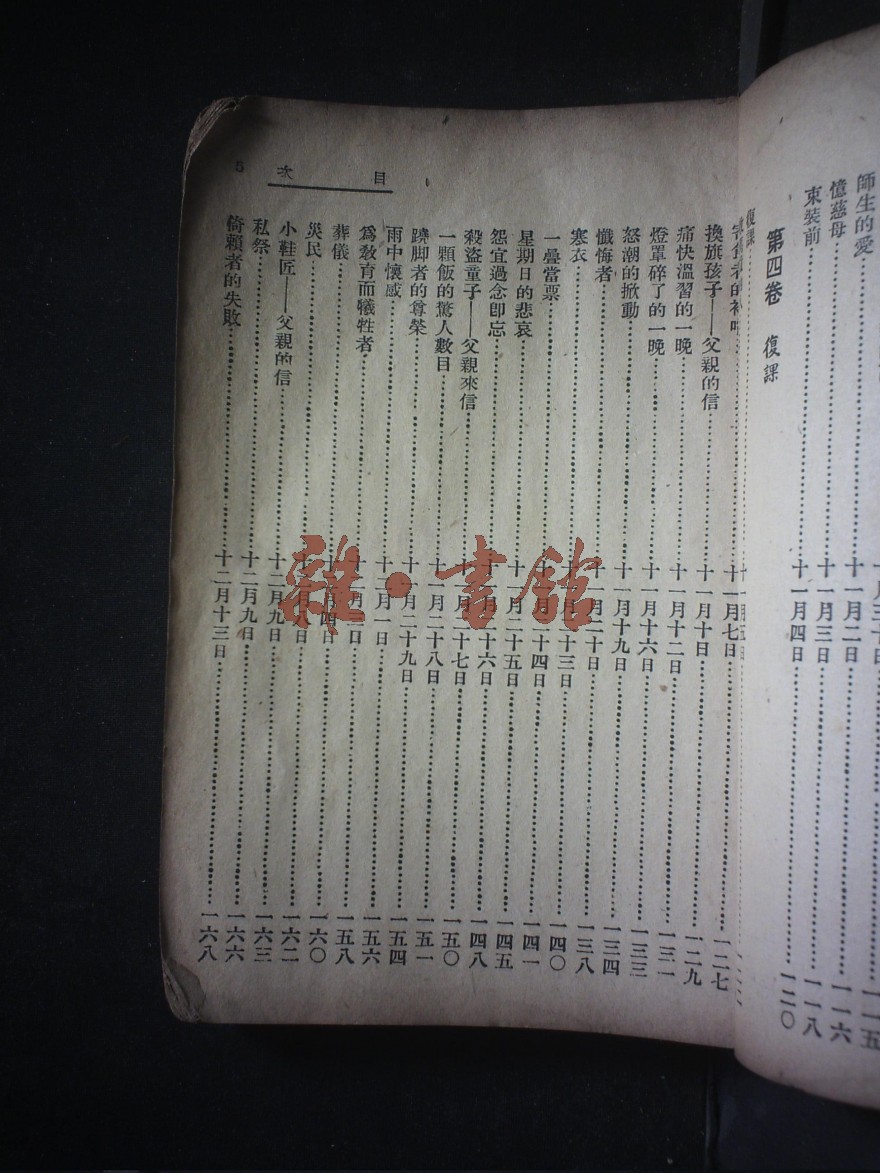 月三十日……一一五
師生的愛……十一月二日……一一六
憶慈母……十一月三日……一一八
束裝前……十一月四日……一二〇
第四卷 復課
復課……
的……十一月七日……一二七
換旗孩子——父親的信……十一月十日……一二九
痛快溫習的一晚……十一月十二日……一三一
燈罩碎了的一晚……十一月十六日……一三三
怒潮的掀動……十一月十九日……一三四
懺悔者……十一月二十日……一三八
寒衣……十一月二十三日……一四〇
一疊當票……十一月二十四日……一四一
星期日的悲哀……十一月二十五日……一四五
怨宜過念卽忘……十一月二十六日……一四八
殺盜童子——父親來信……十一月二十七日……一五〇
一顆飯的驚人數目……十一月二十八日……一五一
蹺脚者的尊榮……十一月二十九日……一五四
雨中懷感……十二月一日……一五六
爲教育而犧牲者……十二月二日……一五八
葬儀……十二月四日……一六〇
災民……十二月八日……一六二
小鞋匠——父親的信……十二月九日……一六三
私祭……十二月九日……一六六
倚賴者的失敗……十二月十三日……一六八
目次 5
雜·書館